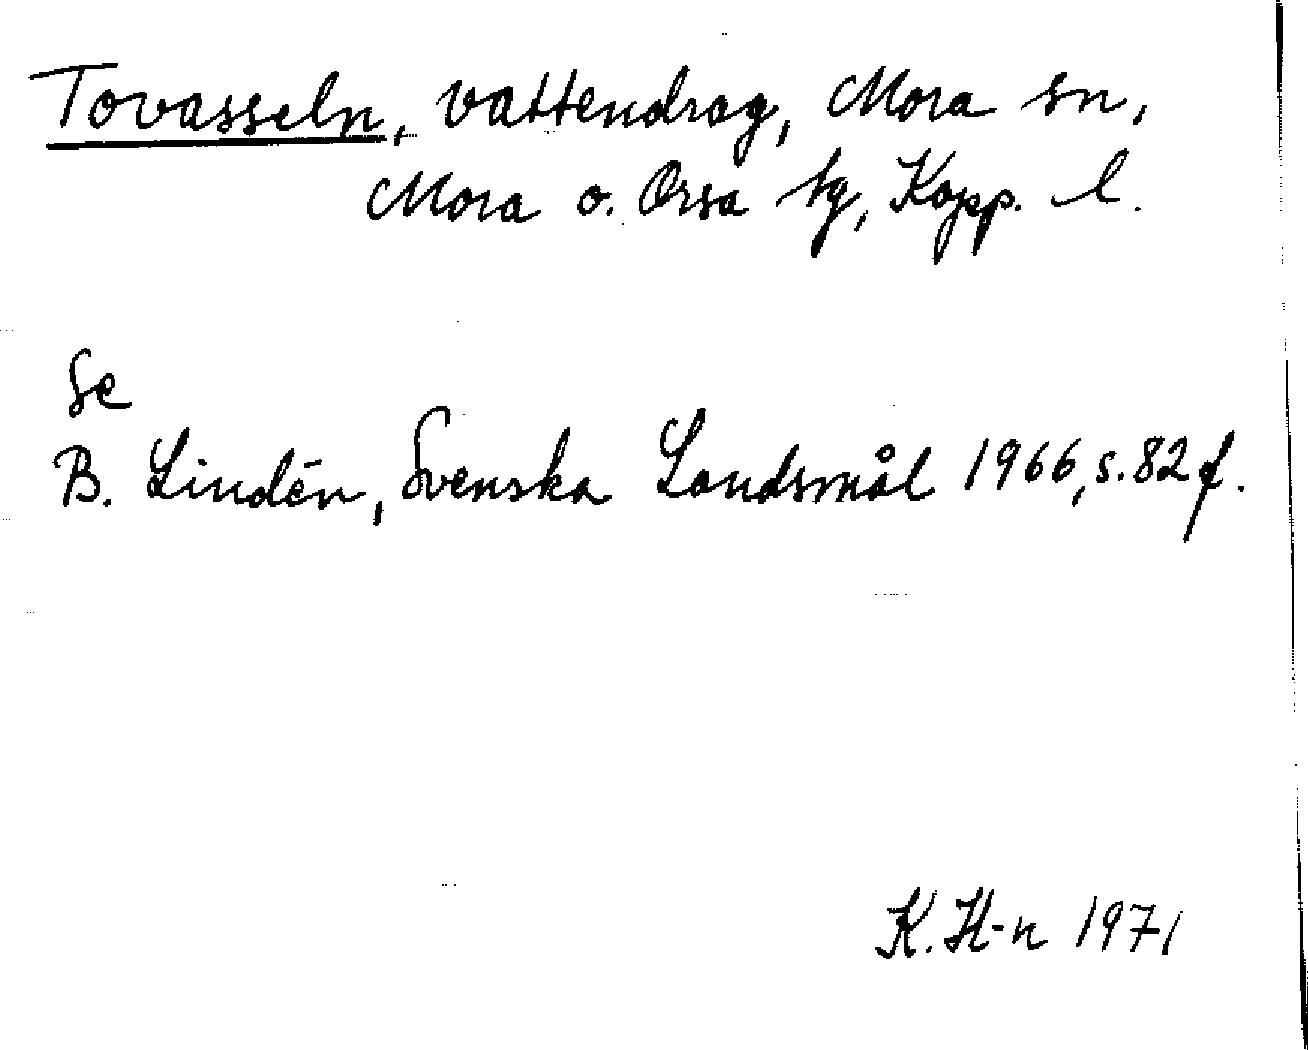 Tovasseln, vattendrag, Mora sn,
Mora o. Orsa tg, Kopp. l.
Se
B. Lindén, Svenska Landsmål 1966, s. 82 f.
K. H-n 1971